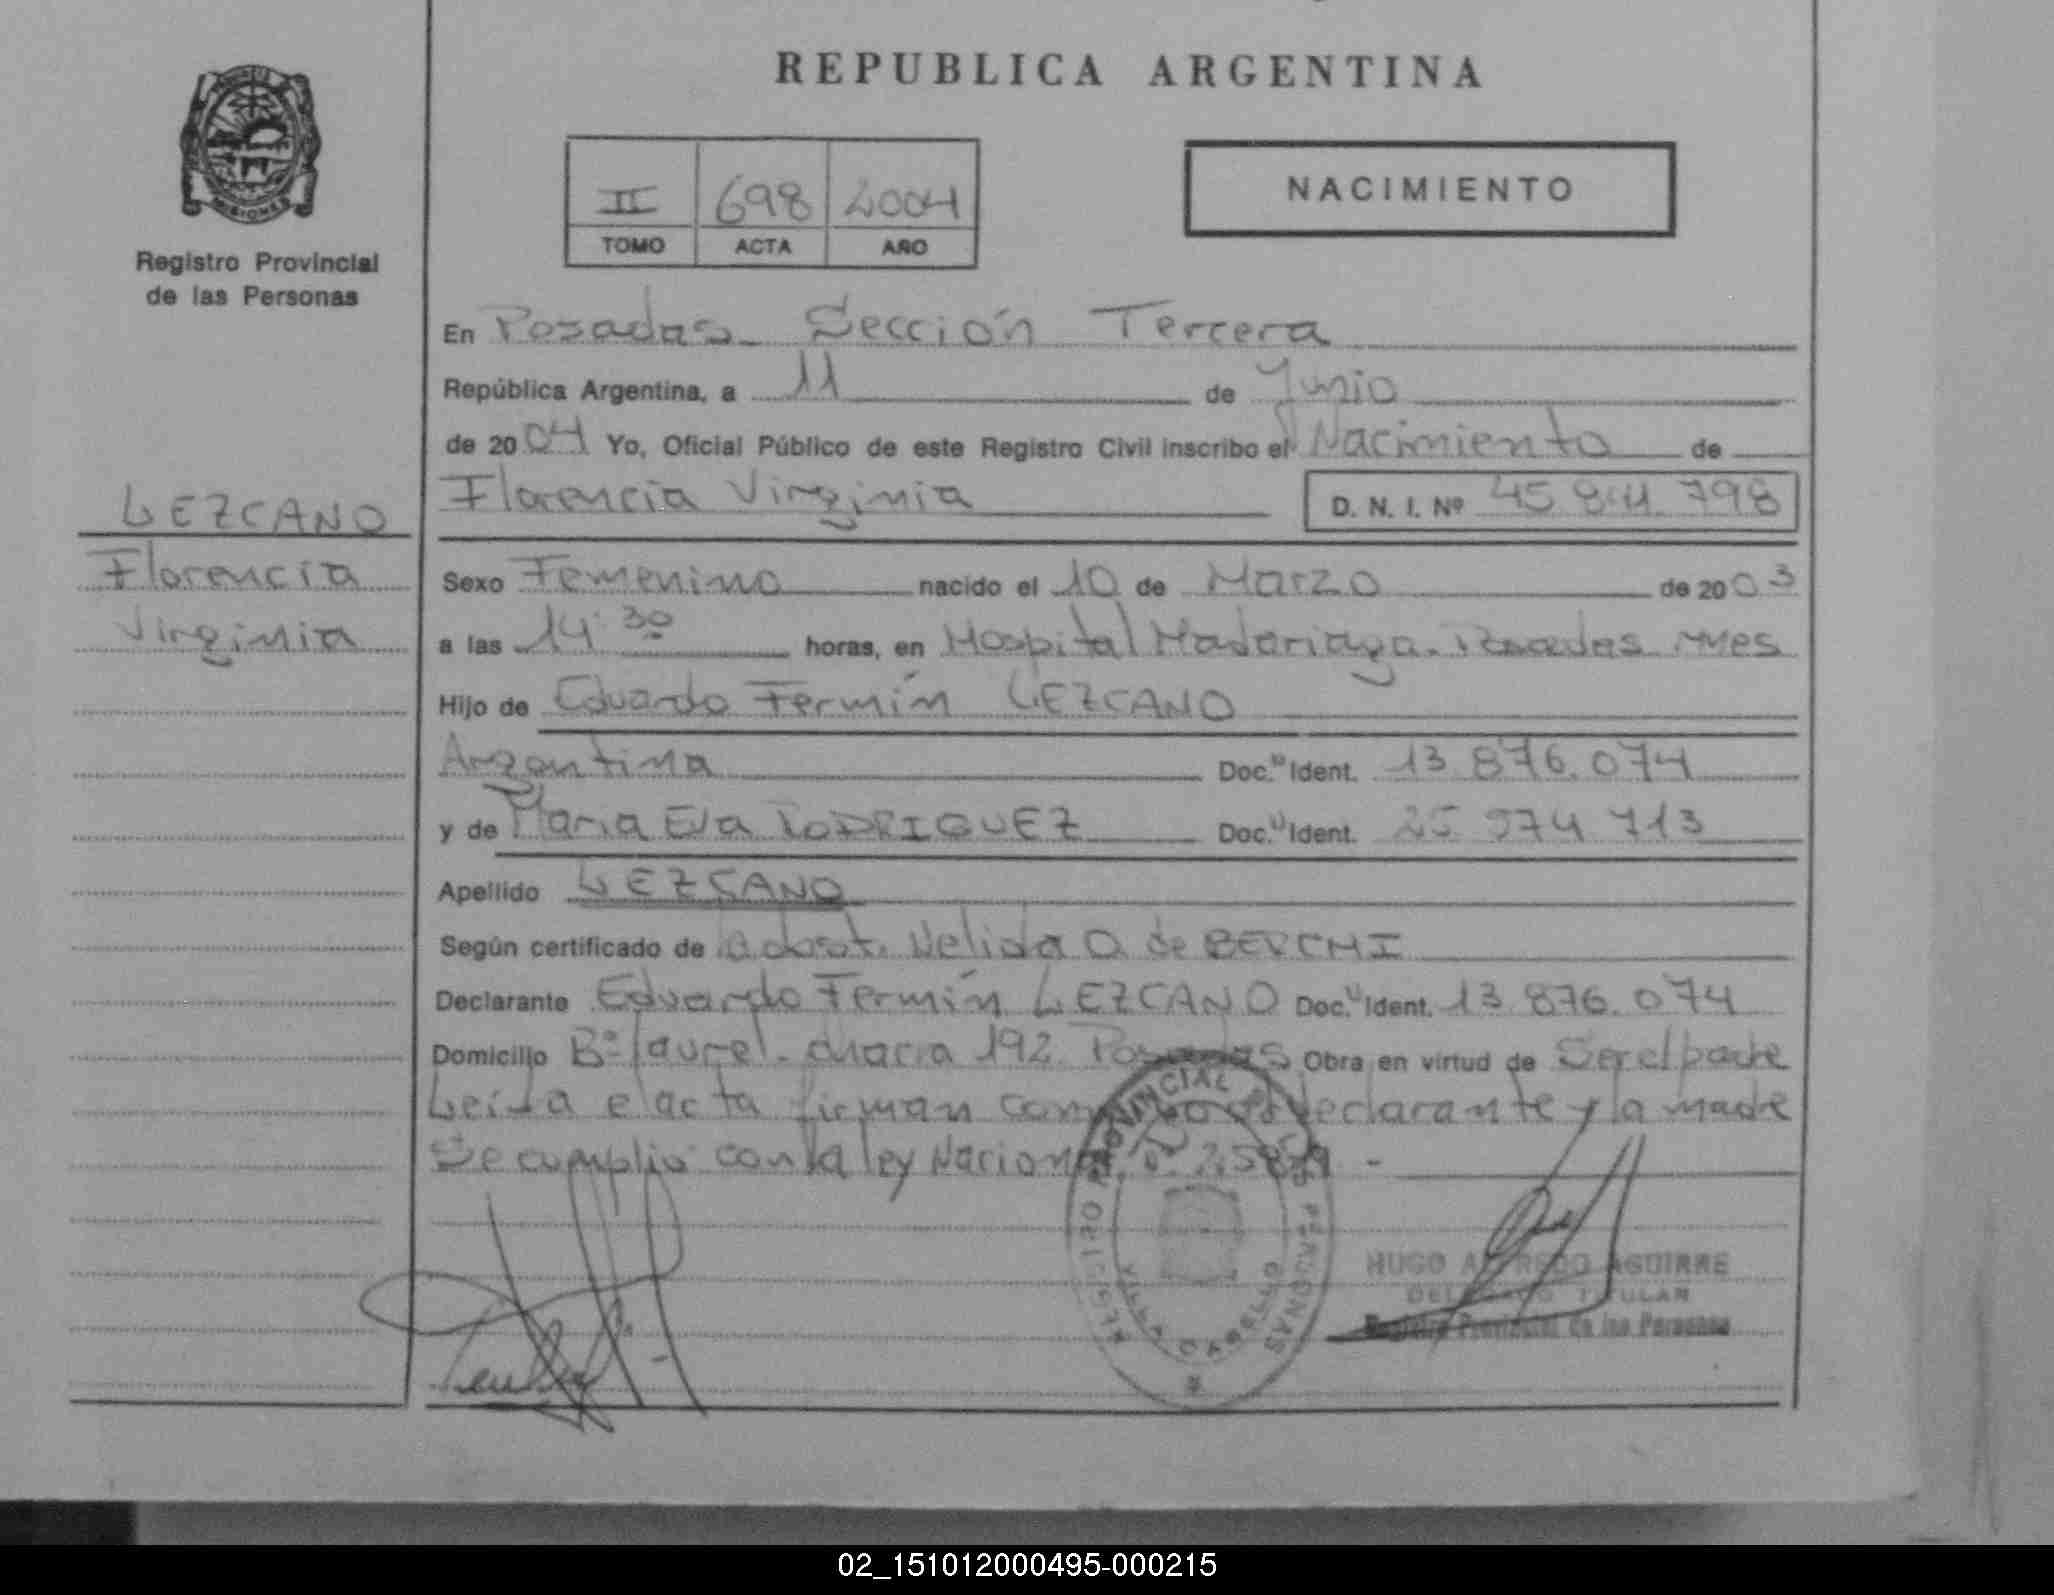 REPUBLICA ARGENTINA
MISIONES
Registro Provincial
de las Personas
II 698 2004
TOMO ACTA AÑO
NACIMIENTO
En Posadas - Sección Tercera
República Argentina, a 11 de Junio
de 2004 Yo, Oficial Público de este Registro Civil inscribo el Nacimiento de
LEZCANO
Florencia
Virginia
Florencia Virginia D. N. I. Nº 45.841.798
Sexo Femenino nacido el 10 de Marzo de 2003
a las 14:30 horas, en Hospital Madariaga. Posadas Mnes
Hijo de Eduardo Fermín LEZCANO
Argentina Doc.º Ident. 13.876.074
y de Maria Eva RODRIGUEZ Doc.º Ident. 25.974.713
Apellido LEZCANO
Según certificado de la obst. Nelida O. de BERCHI
Declarante Eduardo Fermín LEZCANO Doc.º Ident. 13.876.074
Domicilio Bº laurel - chacra 192 Posadas Obra en virtud de Ser el padre
Leída el acta firman conmigo el declarante y la madre
Se cumplió con la ley Nacional
REGISTRO PROVINCIAL DE LAS PERSONAS
VILLA CABELLO
HUGO ALFREDO AGUIRRE
DELEGADO TITULAR
Registro Provincial de las Personas
02_151012000495-000215